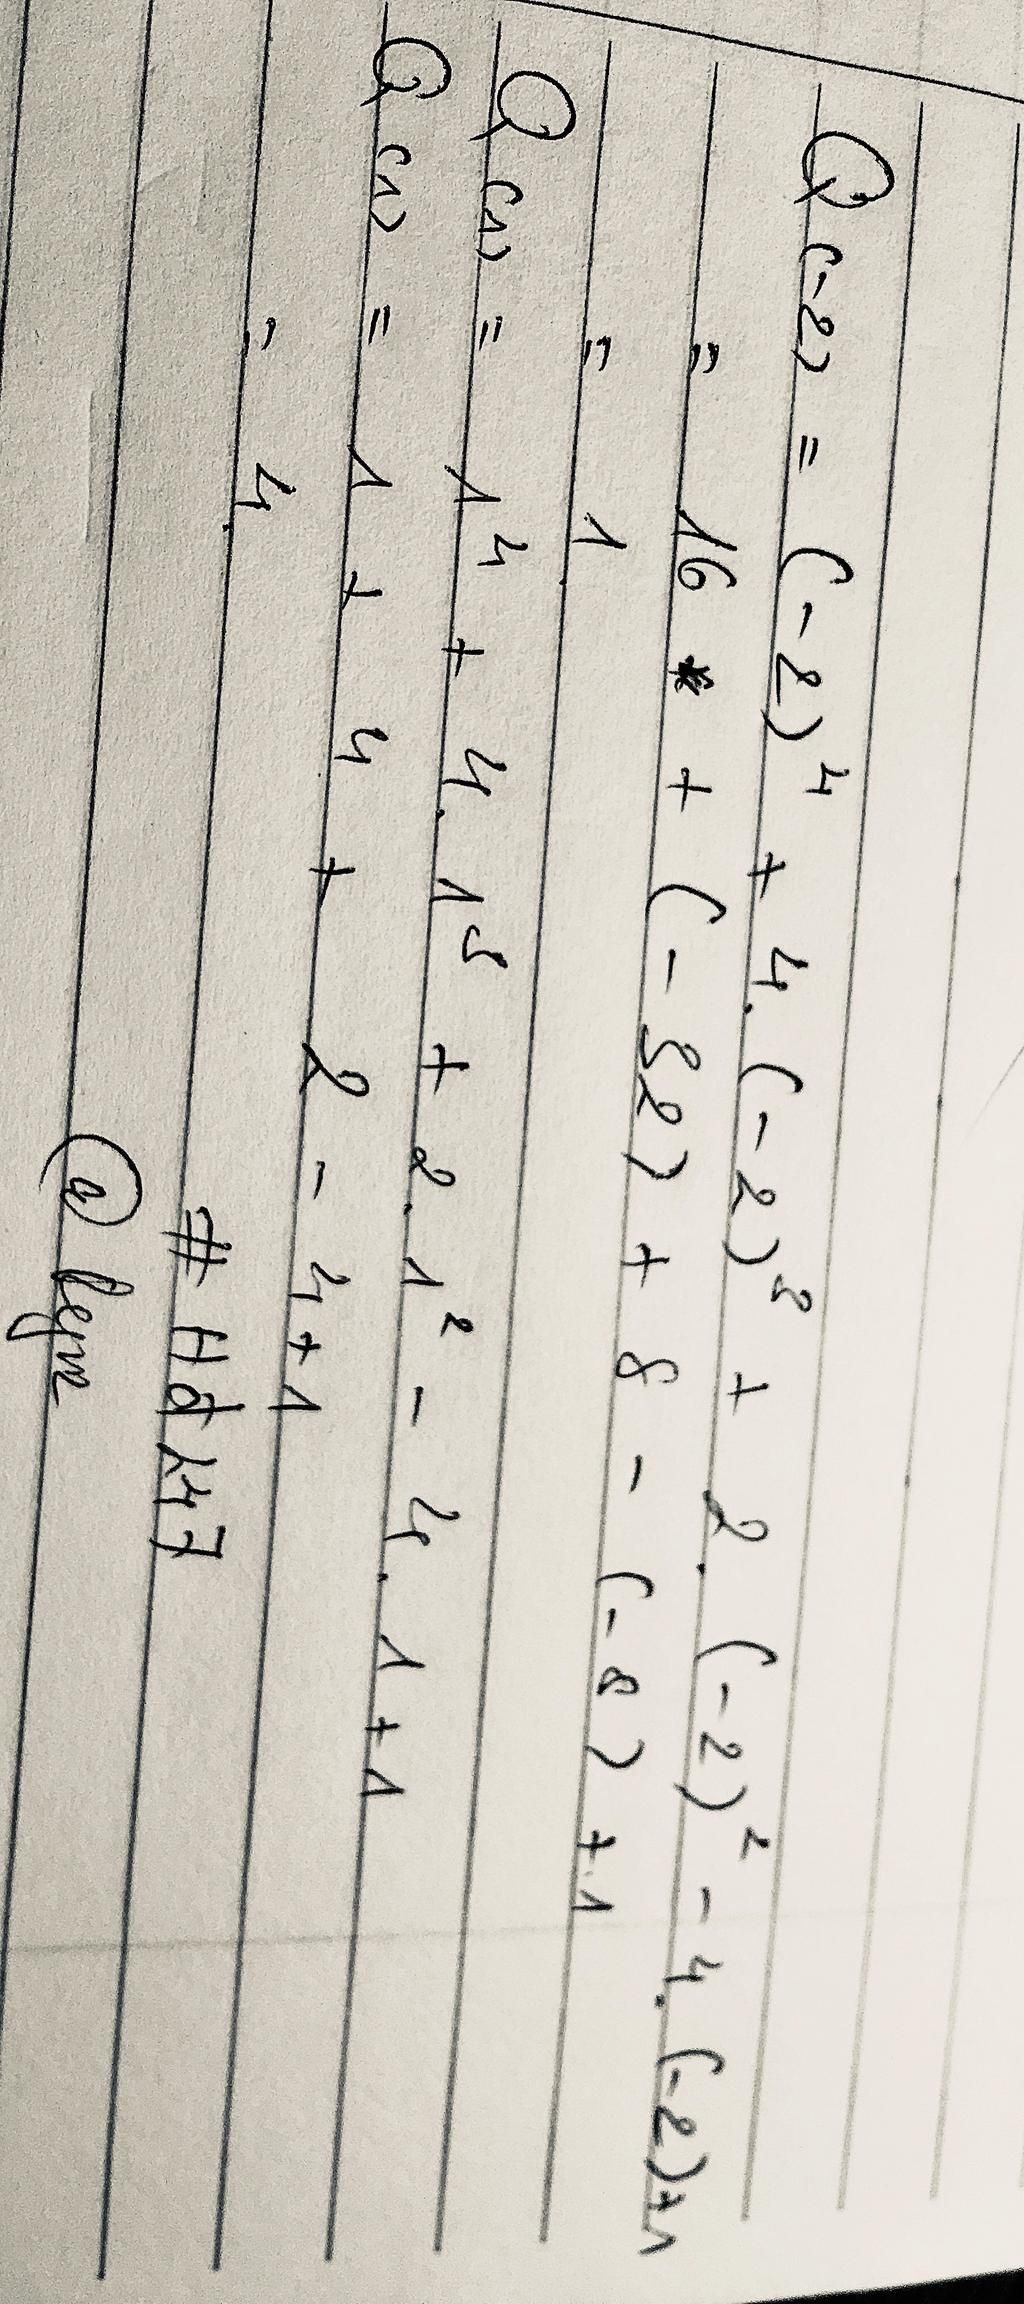 Q(-2) = (-2)⁴ + 4.(-2)³ + 2.(-2)² - 4.(-2)+1
= 16 + (-32) + 8 - (-8) + 1
= 1
Q(1) = 1⁴ + 4.1³ + 2.1² - 4.1+1
Q(1) = 1 + 4 + 2 - 4+1
= 4.